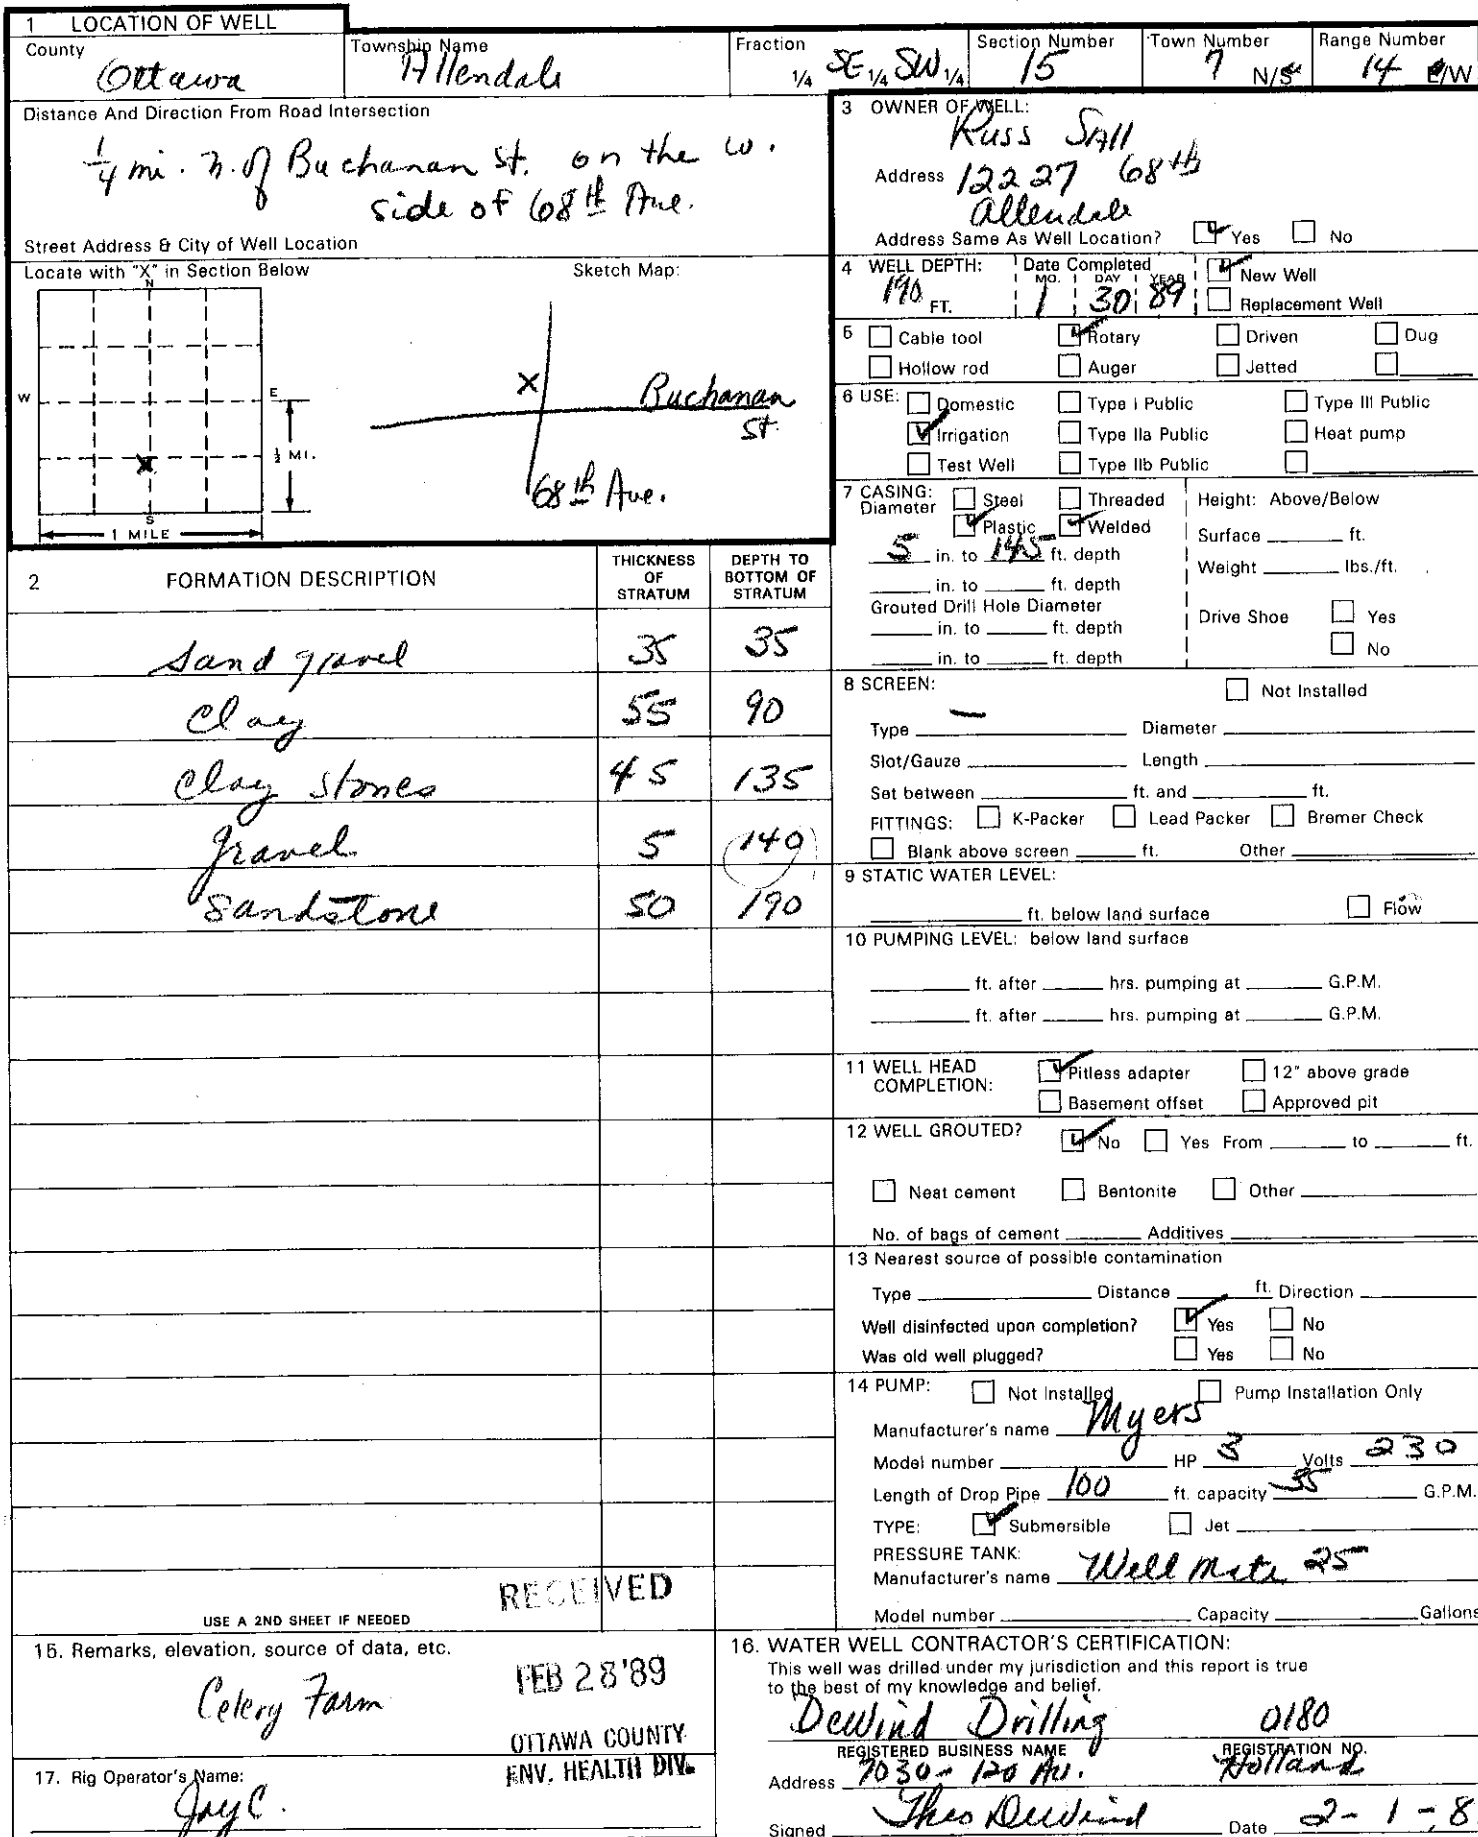 1 LOCATION OF WELL
County
Ottawa
Township Name
Allendale
Fraction
1/4 SE 1/4 SW 1/4
Section Number
15
Town Number
7 N/S
Range Number
14 E/W
Distance And Direction From Road Intersection
1/4 mi. N. of Buchanan St. on the W.
side of 68th Ave.
Street Address & City of Well Location
Locate with "X" in Section Below
Sketch Map:
N
W
E
S
X
½ MI.
1 MILE
X
Buchanan
St.
68th Ave.
3 OWNER OF WELL:
Russ Sall
Address 12227 68th
Allendale
Address Same As Well Location? Yes No
4 WELL DEPTH:
190 FT.
Date Completed
MO. DAY YEAR
1 30 89
New Well
Replacement Well
5 Cable tool Rotary Driven Dug
Hollow rod Auger Jetted
6 USE: Domestic Type I Public Type III Public
Irrigation Type IIa Public Heat pump
Test Well Type IIb Public
7 CASING: Steel Threaded
Diameter Plastic Welded
5 in. to 145 ft. depth
in. to ft. depth
Grouted Drill Hole Diameter
in. to ft. depth
in. to ft. depth
Height: Above/Below
Surface ft.
Weight lbs./ft.
Drive Shoe Yes
No
2 FORMATION DESCRIPTION
THICKNESS OF STRATUM
DEPTH TO BOTTOM OF STRATUM
Sand gravel 35 35
Clay 55 90
Clay stones 45 135
Gravel 5 140
Sandstone 50 190
USE A 2ND SHEET IF NEEDED
8 SCREEN: Not Installed
Type — Diameter
Slot/Gauze Length
Set between ft. and ft.
FITTINGS: K-Packer Lead Packer Bremer Check
Blank above screen ft. Other
9 STATIC WATER LEVEL:
ft. below land surface Flow
10 PUMPING LEVEL: below land surface
ft. after hrs. pumping at G.P.M.
ft. after hrs. pumping at G.P.M.
11 WELL HEAD COMPLETION: Pitless adapter 12" above grade
Basement offset Approved pit
12 WELL GROUTED? No Yes From to ft.
Neat cement Bentonite Other
No. of bags of cement Additives
13 Nearest source of possible contamination
Type Distance ft. Direction
Well disinfected upon completion? Yes No
Was old well plugged? Yes No
14 PUMP: Not Installed Pump Installation Only
Manufacturer's name Myers
Model number HP 3 Volts 230
Length of Drop Pipe 100 ft. capacity 55 G.P.M.
TYPE: Submersible Jet
PRESSURE TANK:
Manufacturer's name Well Mate 25
Model number Capacity Gallons
RECEIVED
FEB 28 '89
OTTAWA COUNTY
ENV. HEALTH DIV.
15. Remarks, elevation, source of data, etc.
Celery Farm
17. Rig Operator's Name:
Jay C.
16. WATER WELL CONTRACTOR'S CERTIFICATION:
This well was drilled under my jurisdiction and this report is true
to the best of my knowledge and belief.
DeWind Drilling 0180
REGISTERED BUSINESS NAME REGISTRATION NO.
Address 7030- 120 Av. Holland
Signed Theo DeWind Date 2-1-8